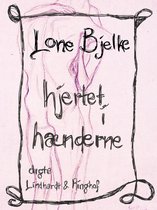 Lone Bjelke
hjertet i
hænderne
digte
Lindhardt & Ringhof